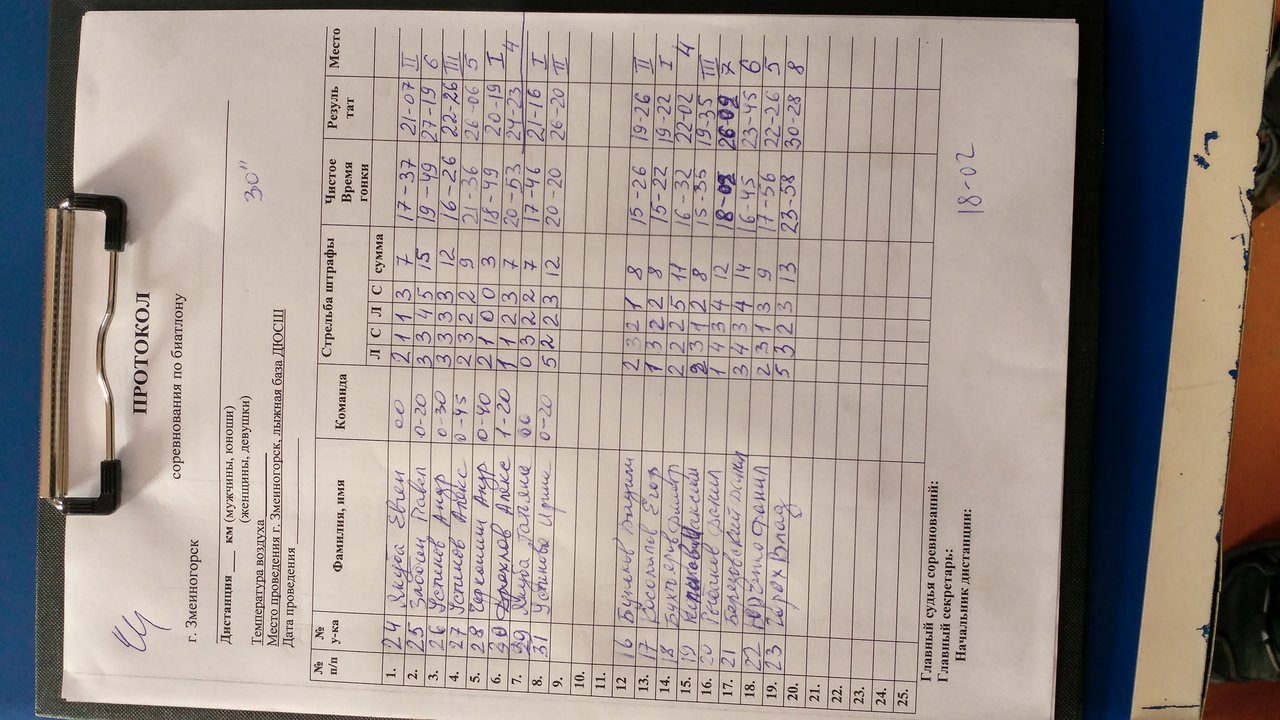 ПРОТОКОЛ
соревнования по биатлону
г. Змеиногорск
30"
Дистанция ___ км (мужчины, юноши)
(женщины, девушки)
Температура воздуха
Место проведения г. Змеиногорск, лыжная база ДЮСШ
Дата проведения
№ п/п № у-ка Фамилия, имя Команда Стрельба штрафы Чистое Время гонки Резуль тат Место
Л С Л С сумма
1. 24 Якуба Евген 00 2 1 1 3 7 17-37 21-07 II
2. 25 Павел 0-20 3 3 4 5 15 19-49 27-19 6
3. 26 Устинов Андр 0-30 3 3 3 3 12 16-26 22-26 III
4. 27 Устинов Алекс 0-45 2 3 2 2 9 21-36 26-06 5
5. 28 Андр 0-40 2 1 0 0 3 18-49 20-19 I
6. Алекс 1-20 1 1 2 3 7 20-53 24-23 4
7. 29 Якуба Татьяна 00 0 3 2 2 7 17-46 21-16 I
8. 31 Устинова Ирина 0-20 5 2 2 3 12 20-20 26-20 II
9.
10.
11.
12 16 Вадим 2 3 2 1 8 15-26 19-26 II
13. 17 Егор 1 3 2 2 8 15-22 19-22 I
14. 18 2 2 2 5 11 16-32 22-02 4
15. 19 2 3 1 2 8 15-35 19-35 III
16. 20 1 4 3 4 12 18-02 26-02 7
17. 21 3 4 3 4 14 16-45 23-45 6
18. 22 Данил 2 3 1 3 9 17-56 22-26 5
19. 23 Влад 5 3 2 3 13 23-58 30-28 8
20.
21.
22.
23.
24.
25.
Главный судья соревнований:
Главный секретарь:
Начальник дистанции:
18-02